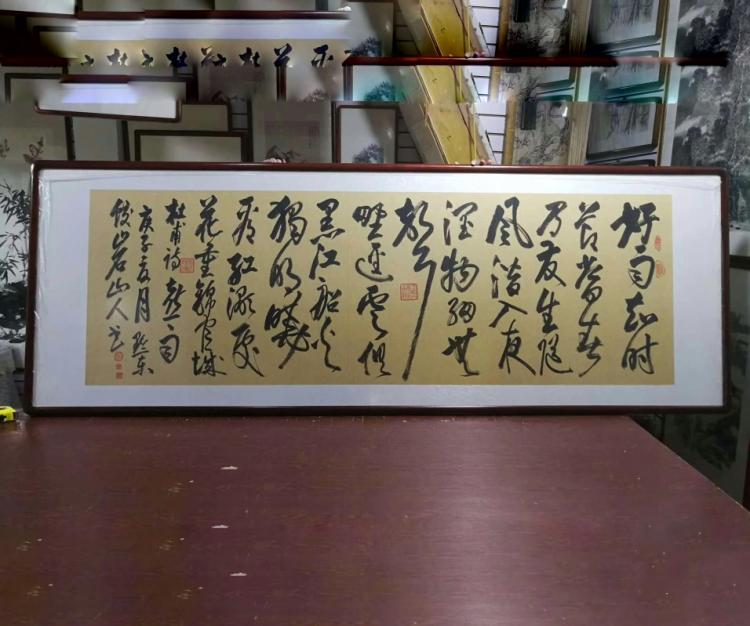 好雨知时
节当春
乃发生随
风潜入夜
润物细无
声
野径云俱
黑江船火
独明晓
看红湿处
花重锦官城
杜甫诗 雨
庚子夏月
山人书